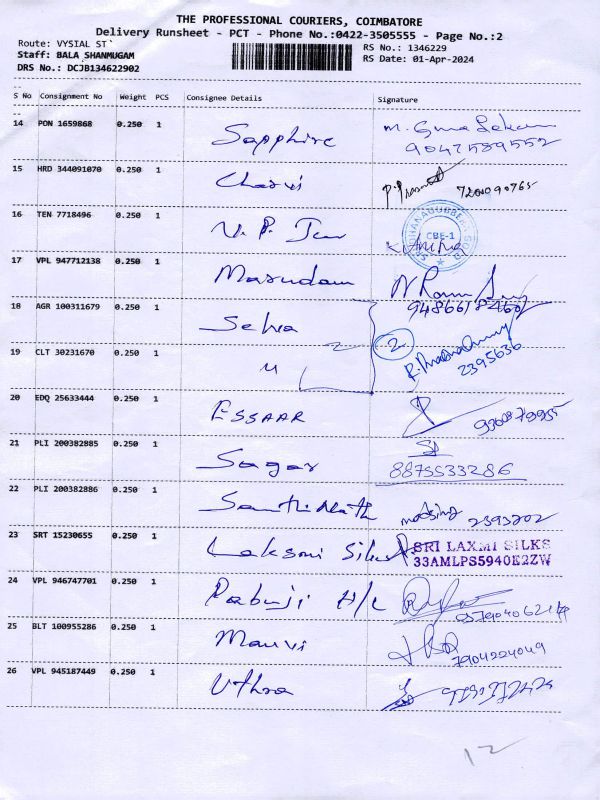 THE PROFESSIONAL COURIERS, COIMBATORE
Delivery Runsheet - PCT - Phone No.:0422-3505555 - Page No.:2
Route: VYSIAL ST`
Staff: BALA SHANMUGAM
DRS No.: DCJB134622902
RS No.: 1346229
RS Date: 01-Apr-2024
S No Consignment No Weight PCS Consignee Details Signature
14 PON 1659868 0.250 1 Sapphire
9047589552
15 HRD 344091070 0.250 1 Charvi
16 TEN 7718496 0.250 1 V.P.
CBE-1
17 VPL 947712138 0.250 1
18 AGR 100311679 0.250 1 Selva
2
19 CLT 30231670 0.250 1 "
2395636
20 EDQ 25633444 0.250 1 ESSAAR
21 PLI 200382885 0.250 1 Sagar
8875533286
22 PLI 200382886 0.250 1
2393202
23 SRT 15230655 0.250 1 Laksmi Silks
SRI LAXMI SILKS
33AMLPS5940E2ZW
24 VPL 946747701 0.250 1 Pabuji H/L
25 BLT 100955286 0.250 1 Manvi
7904224049
26 VPL 945187449 0.250 1 Uthra
12